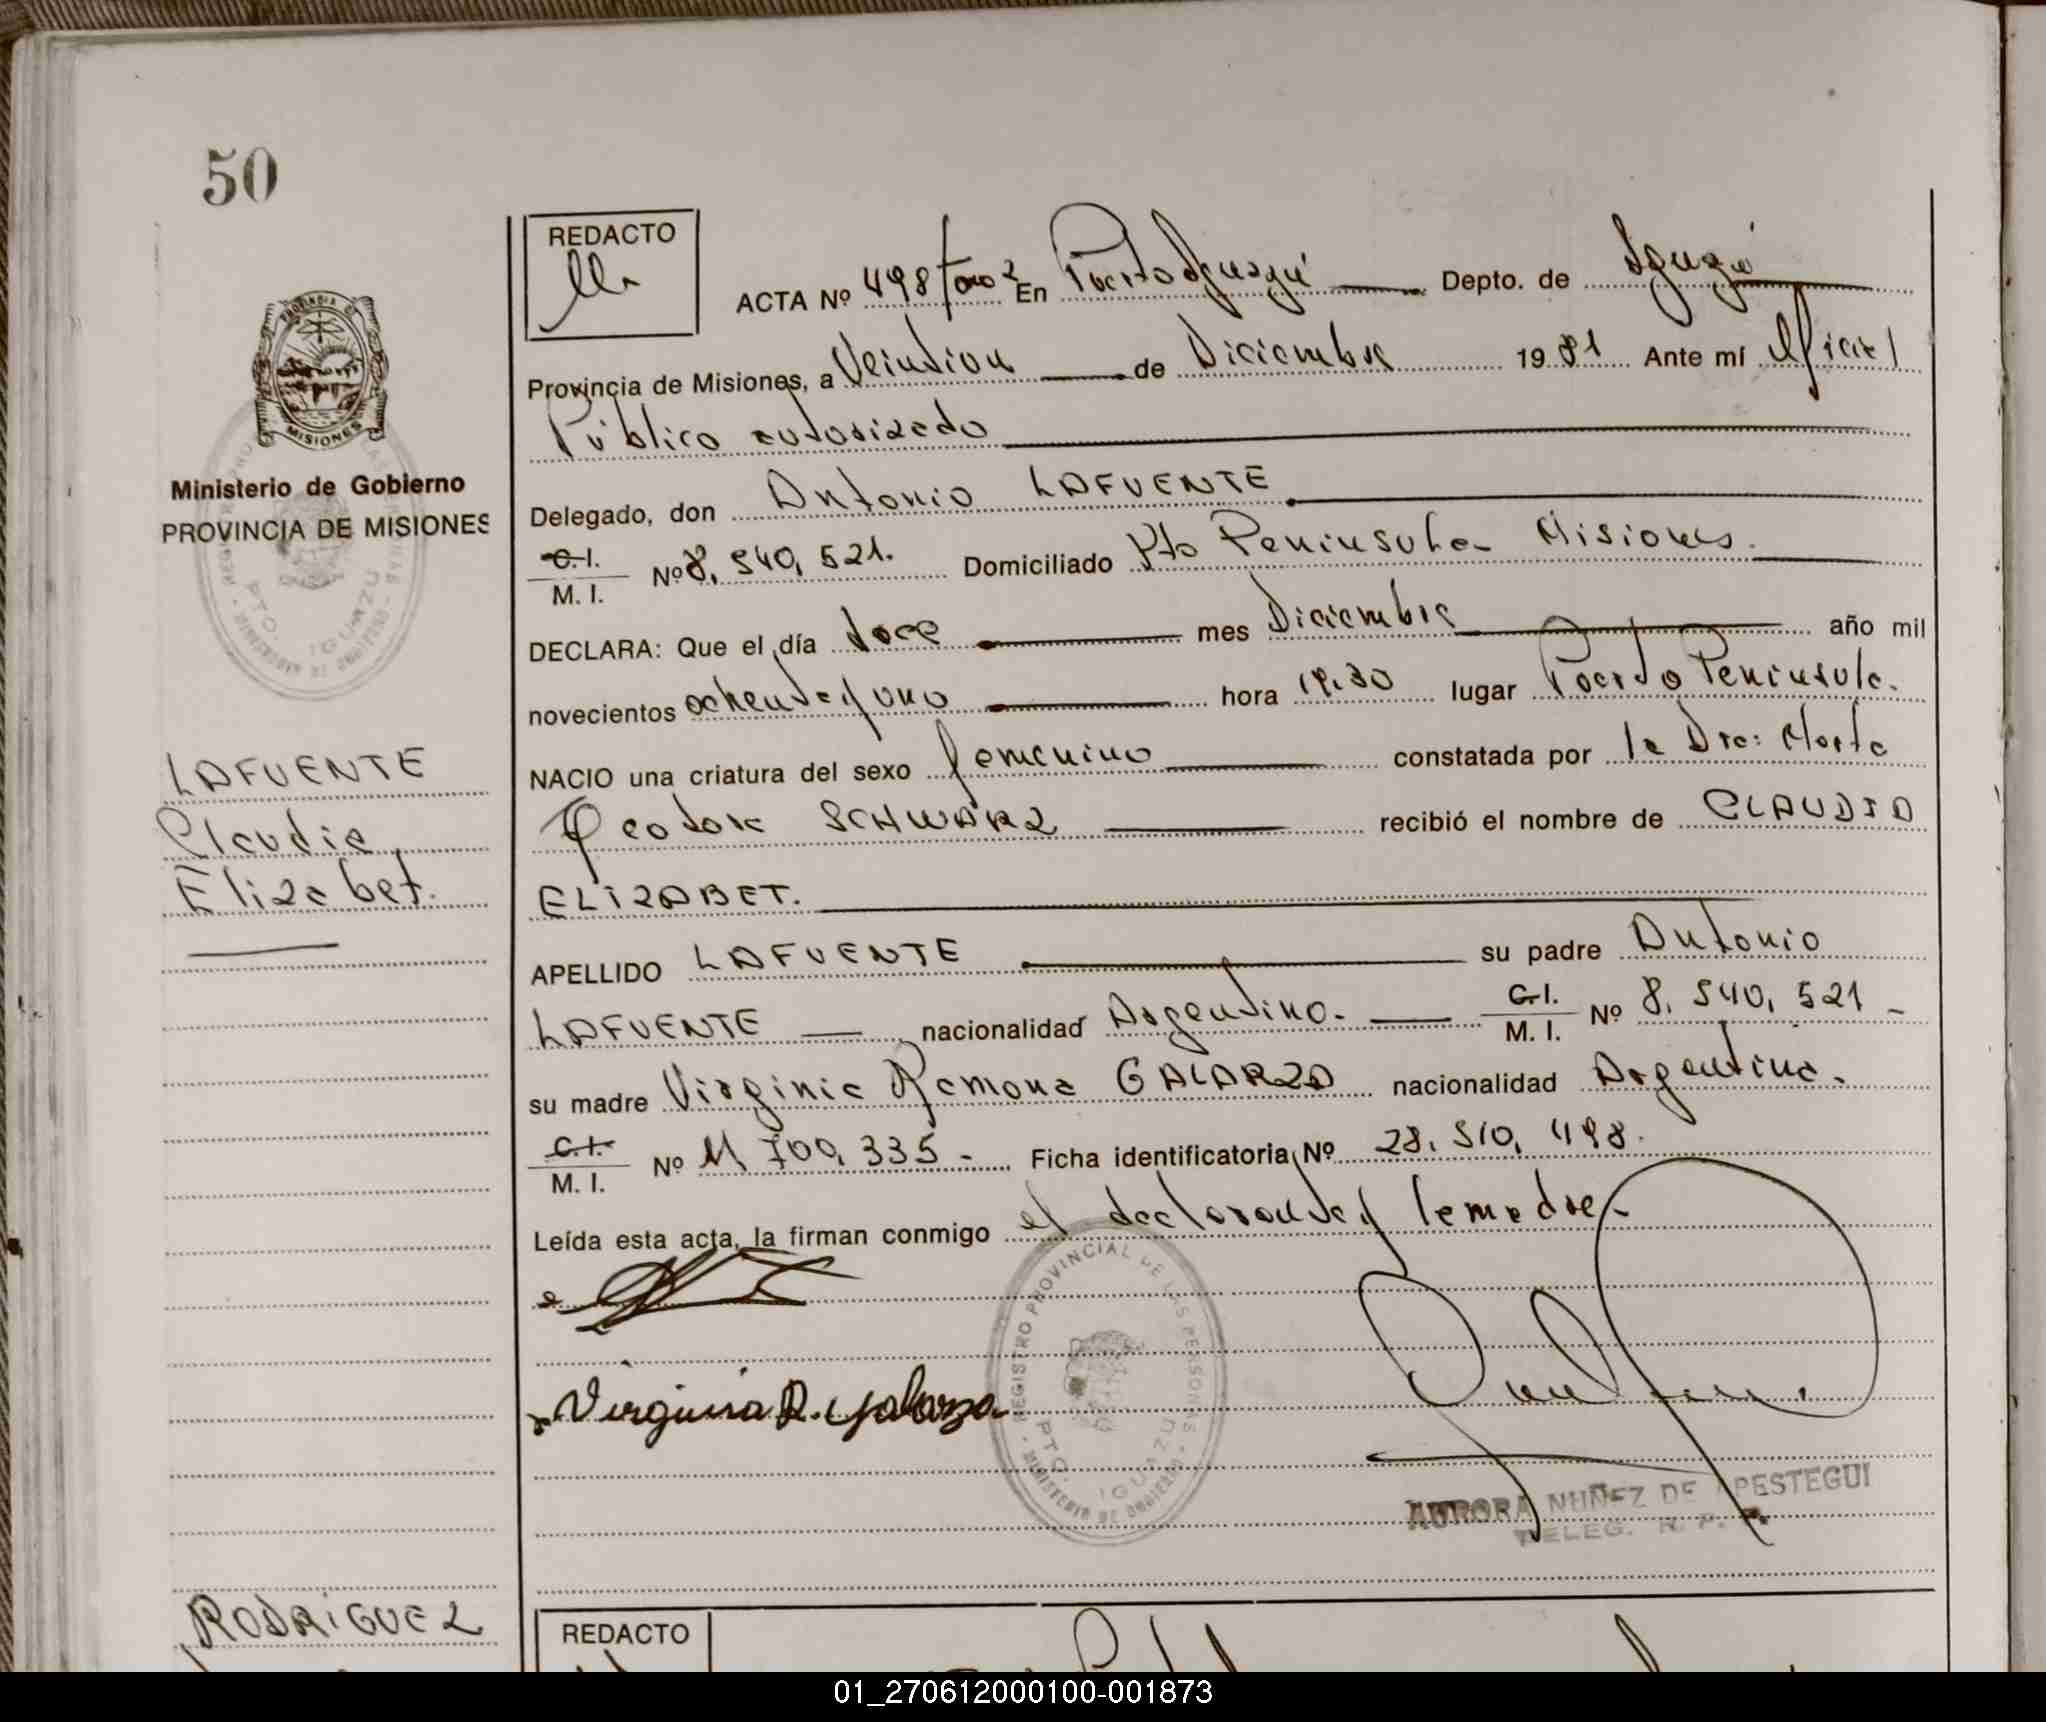 50
REDACTO
ACTA Nº 498/Tomo 2 En Puerto Iguazú Depto. de Iguazú
Provincia de Misiones, a Veintidos de Diciembre 1981 Ante mí Oficial
Público autorizado
PROVINCIA DE
MISIONES
Ministerio de Gobierno
PROVINCIA DE MISIONES
PTO. IGUAZU
Delegado, don Antonio LAFUENTE
C.I.
M. I. Nº 8,540,521. Domiciliado Pto Peninsula - Misiones.
DECLARA: Que el día doce mes Diciembre año mil
novecientos ochenta y uno hora 19.30 lugar Puerto Peninsula.
NACIO una criatura del sexo femenino constatada por la Dra: Marta
Teodora SCHWARZ recibió el nombre de CLAUDIA
ELIZABET.
LAFUENTE
Claudia
Elizabet.
APELLIDO LAFUENTE su padre Antonio
LAFUENTE nacionalidad Argentino. C.I.
M. I. Nº 8,540,521 -
su madre Virginia Ramona GALARZA nacionalidad Argentina.
C.I.
M. I. Nº 11,700,335 - Ficha identificatoria Nº 28,510,498.
Leída esta acta, la firman conmigo el declarante y la madre -
Virginia R. Galarza
REGISTRO PROVINCIAL DE LAS PERSONAS
MINISTERIO DE GOBIERNO
PTO. IGUAZU
AURORA NUÑEZ DE APESTEGUI
DELEG. R. P.
RODRIGUEZ
REDACTO
01_270612000100-001873